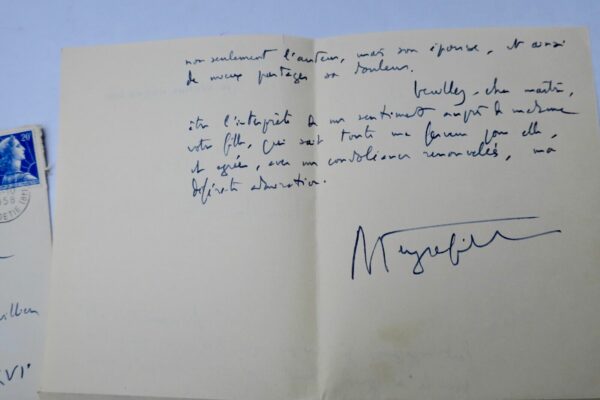 non seulement l'auteur, mais son épouse, et ainsi
de mieux partager sa douleur.
Veuillez, cher maître,
être l'interprète de mes sentiments auprès de madame
votre fille, qui sait toute ma ferveur pour elle,
et agréer, avec mes condoléances renouvelées, ma
déférente admiration.
Peyrefitte
20F
1958
XVIe